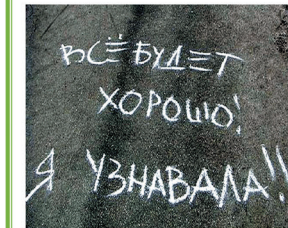 ВСЁ БУДЕТ
ХОРОШО!
Я УЗНАВАЛА!!